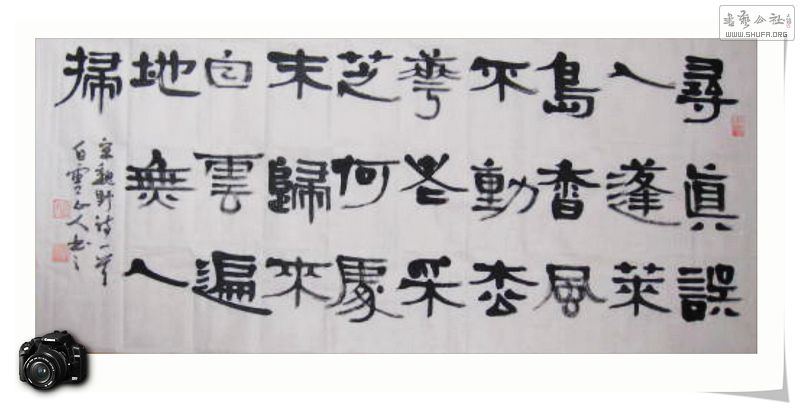 尋眞誤
入蓬萊
島香風
不動枩
華老采
芝何處
末歸來
白雲遍
地無人
掃
宋魏野詩一首
白雪山人书
書藝公社
WWW.SHUFA.ORG
Canon